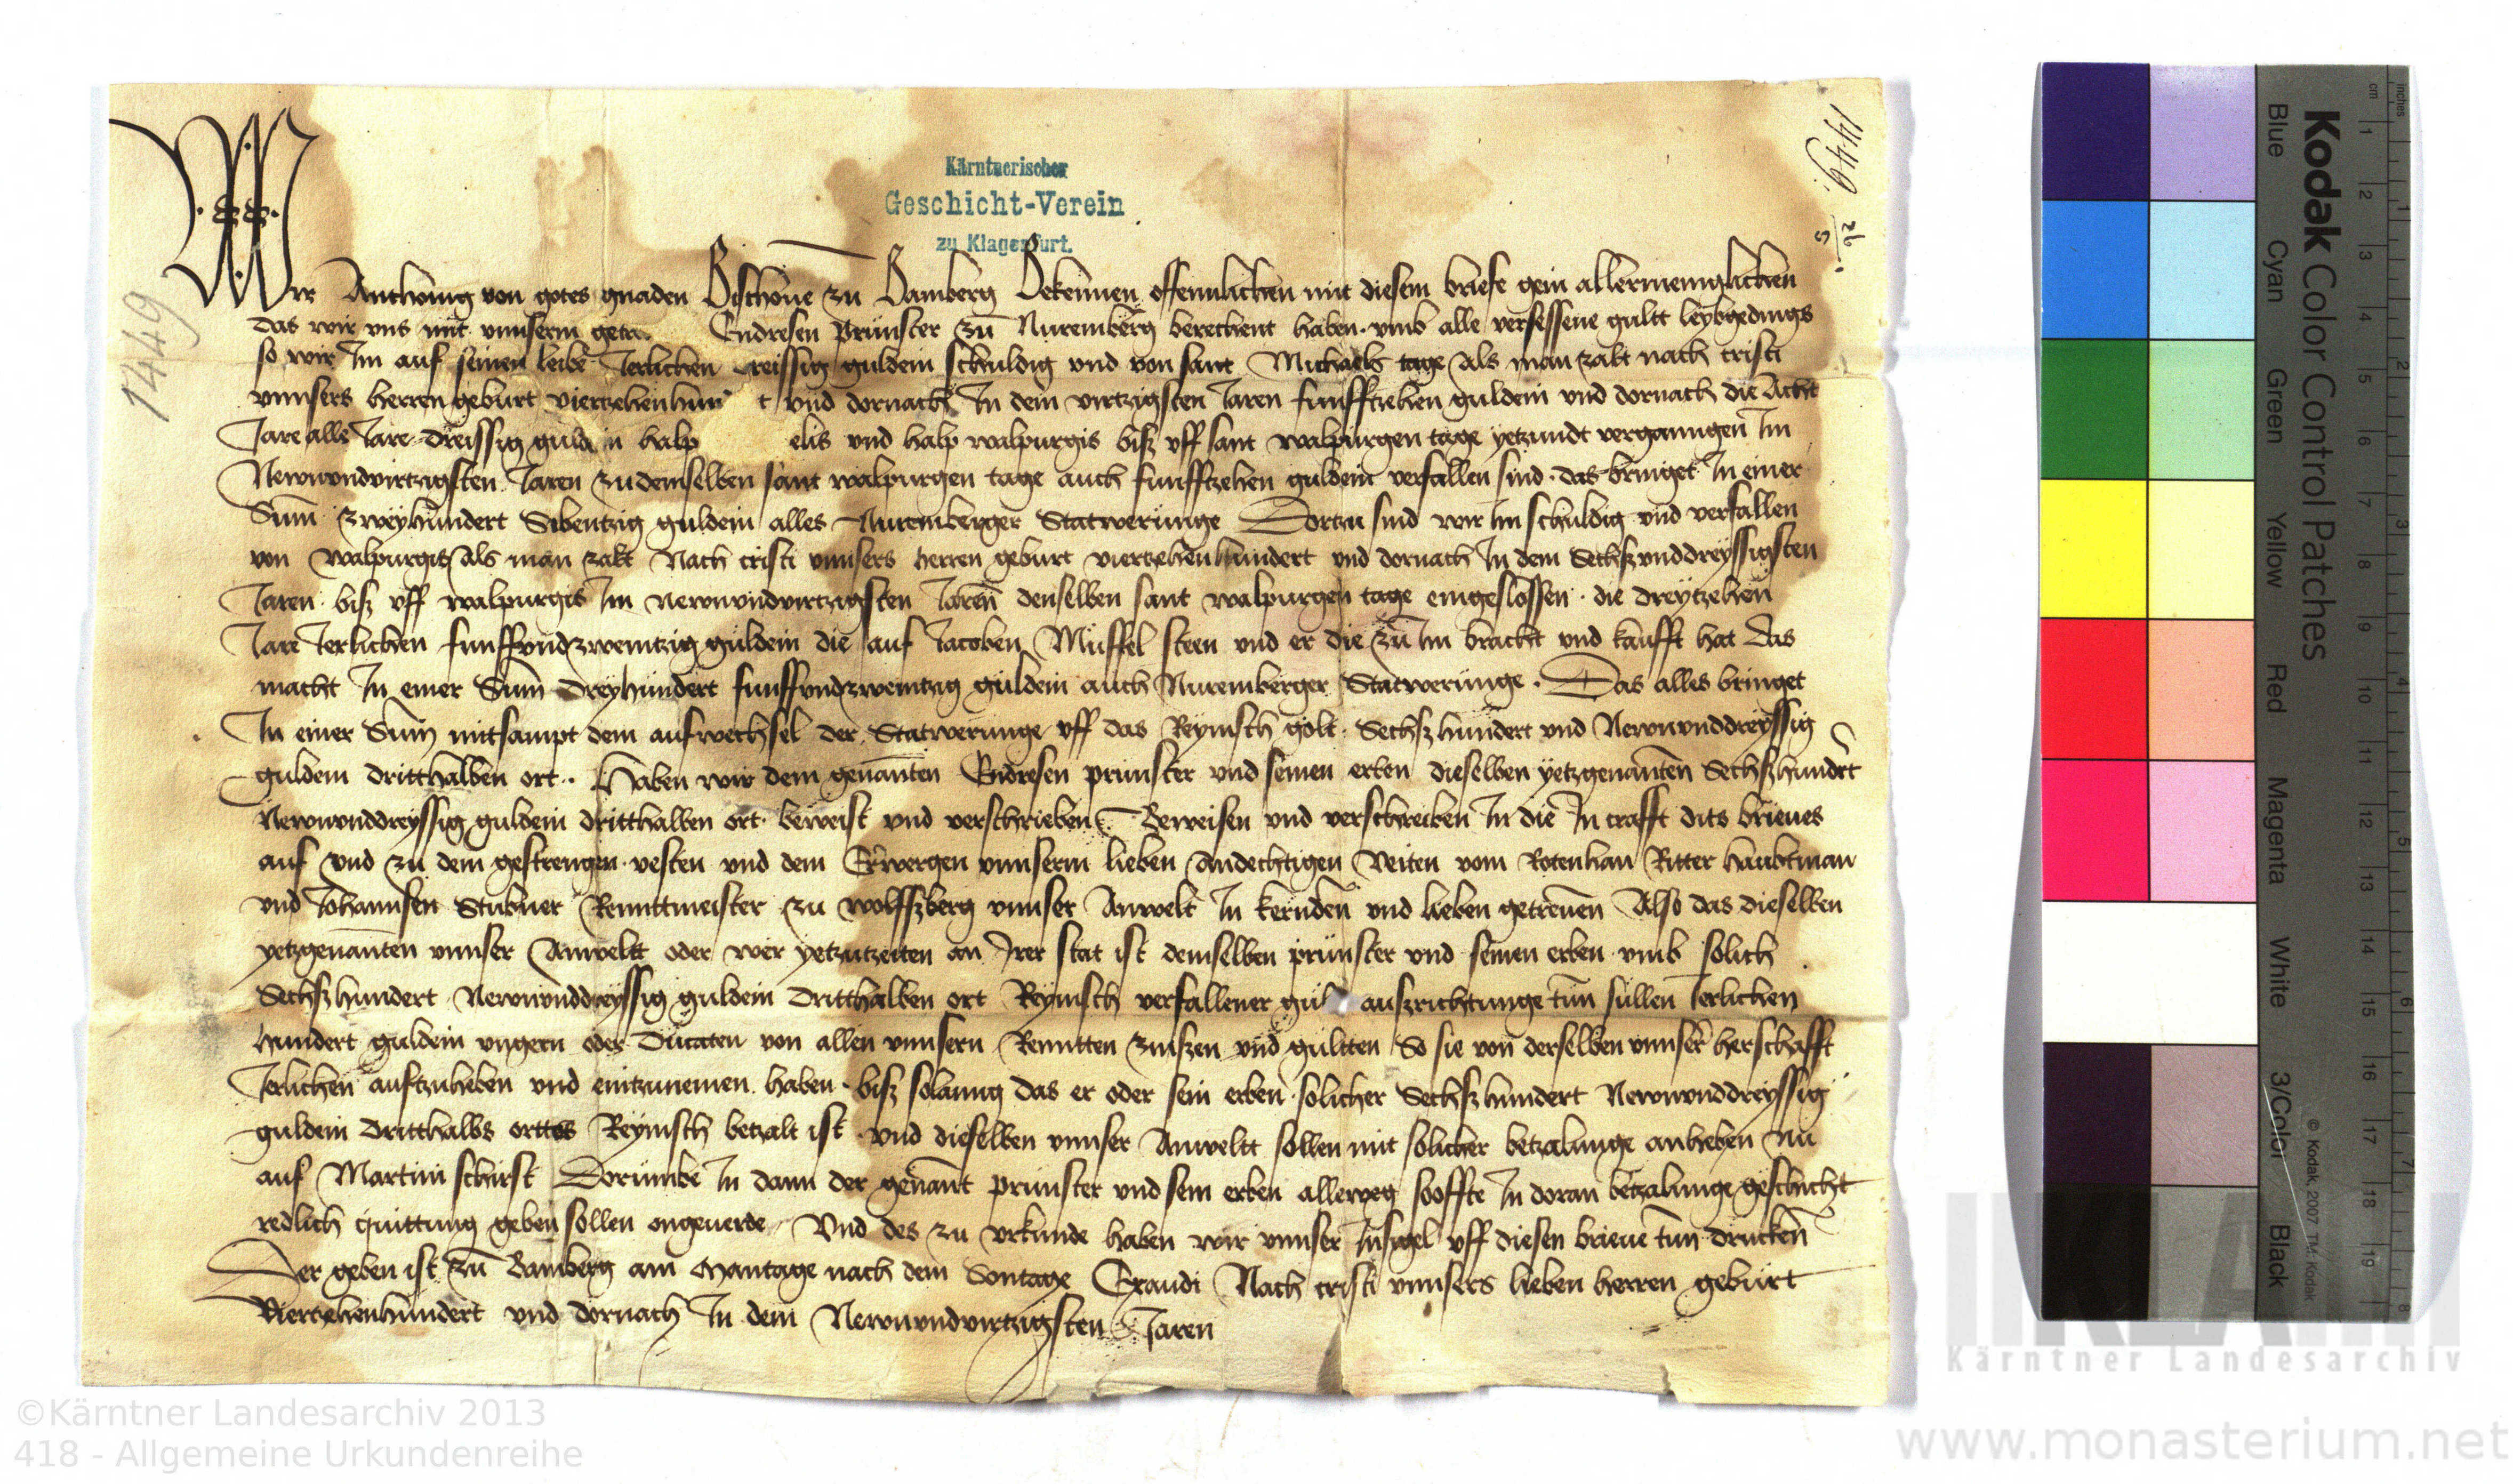 Kärntnerischer
Geschicht-Verein
zu Klagenfurt.
1449
1449.
26/5
Wir Anthonig von gotes gnaden Bischoue zu Bamberg Bekennen offennlichen mit diesem briefe gein allermenniglichen
das wir vns mit vnnserm getr Endresen Prünster zu Nuremberg berechent haben vmb alle versessene gultt leybgedings
so wir Im auf seinen leibe Ierlichen reissig guldein schuldig vnd von sant Michaels tage als man zalt nach cristi
vnnsers herren geburt viertzehenhun t vnd dornach In dem virtzigsten Iaren funfftzehen guldein vnd dornach die Acht
Iare alle Iare dreissig guld in halp elis vnd halp walpurgis bisz vff sant walpurgen tage yetzundt vergangen Im
Newnvndvirtzigsten Iaren zu demselben sant walpurgen tage auch funfftzehen guldein verfallen sind das bringet In einer
Summ zweyhundert Sibentzig guldein alles Nuremberger Statwerunge Dortzu sind wir Im schuldig vnd verfallen
von walpurgis als man zalt Nach cristi vnnsers herren geburt viertzehenhundert vnd dornach In dem Sechszvnddreyssigsten
Iaren bisz vff walpurgis Im newnvndvirtzigsten Iaren denselben sant walpurgen tage eingeslossen die dreytzehen
Iare Ierlichen funffvndzweintzig guldein die auf Iacoben Müffel steen vnd er die zu Im bracht vnd kaufft hat Das
macht In einer Summ dreyhundert funffvndzweintzig guldein auch Nuremberger Statwerunge Das alles bringet
In einer Summ mitsampt dem aufwechsel der Statwerunge vff das Reynisch golt Sechszhundert vnd Newnvnddreyssig
guldein dritthalben ort Haben wir dem genanten Endresen prünster vnd seinen erben dieselben yetzgenanten Sechszhundert
Newnvnddreyssig guldein dritthalben ort beweist vnd verschrieben Beweisen vnd verschreiben In die In crafft dits brieues
auf vnd zu dem gestrengen vesten vnd dem Erwergen vnnserm lieben Andechtigen Veiten vom Rotenhan Ritter haubtman
vnd Iohannsen Stubner Renntmeister zu wolffszberg vnnser Anwelt In kernden vnd lieben getrewen Also das dieselben
yetzgenanten vnnser Anweltt oder wer yetzutzeiten an Irer stat ist demselben prünster vnd seinen erben vmb solich
Sechszhundert Newnvnddreyssig guldein Dritthalben ort Reynisch verfallener gül auszrichtunge tun sullen Ierlichen
hundert guldein vngern oder Ducaten von allen vnnsern Renntten zinszen vnd gultten So sie von derselben vnnser herschafft
Ierlichen auftzuheben vnd eintzunemen haben bisz solanng das er oder sein erben solicher Sechszhundert Newnvnddreyssig
guldein Dritthalbs orttes Reynisch betzalt ist vnd dieselben vnnser Anweltt sollen mit solicher betzalunge anheben Nu
auf Martini schirst Dorumbe In dann der genant prünster vnd sein erben allerweg sooffte In doran betzalunge geschicht
redlich quittung geben sollen ongeuerde Vnd des zu vrkunde haben wir vnnser Insigel vff diesen brieue tun drucken
Der geben ist zu Bamberg am Mantage nach dem Sontage Exaudi Nach cristi vnnsers lieben herren geburt
Viertzehenhundert vnd dornach In dem Newnvndvirtzigsten Iaren
Kodak Color Control Patches
Blue Cyan Green Yellow Red Magenta White 3/Color Black
© Kodak, 2007 TM: Kodak
inches 1 2 3 4 5 6 7 8
cm 1 2 3 4 5 6 7 8 9 10 11 12 13 14 15 16 17 18 19
Kärntner Landesarchiv
©Kärntner Landesarchiv 2013
418 - Allgemeine Urkundenreihe
www.monasterium.net